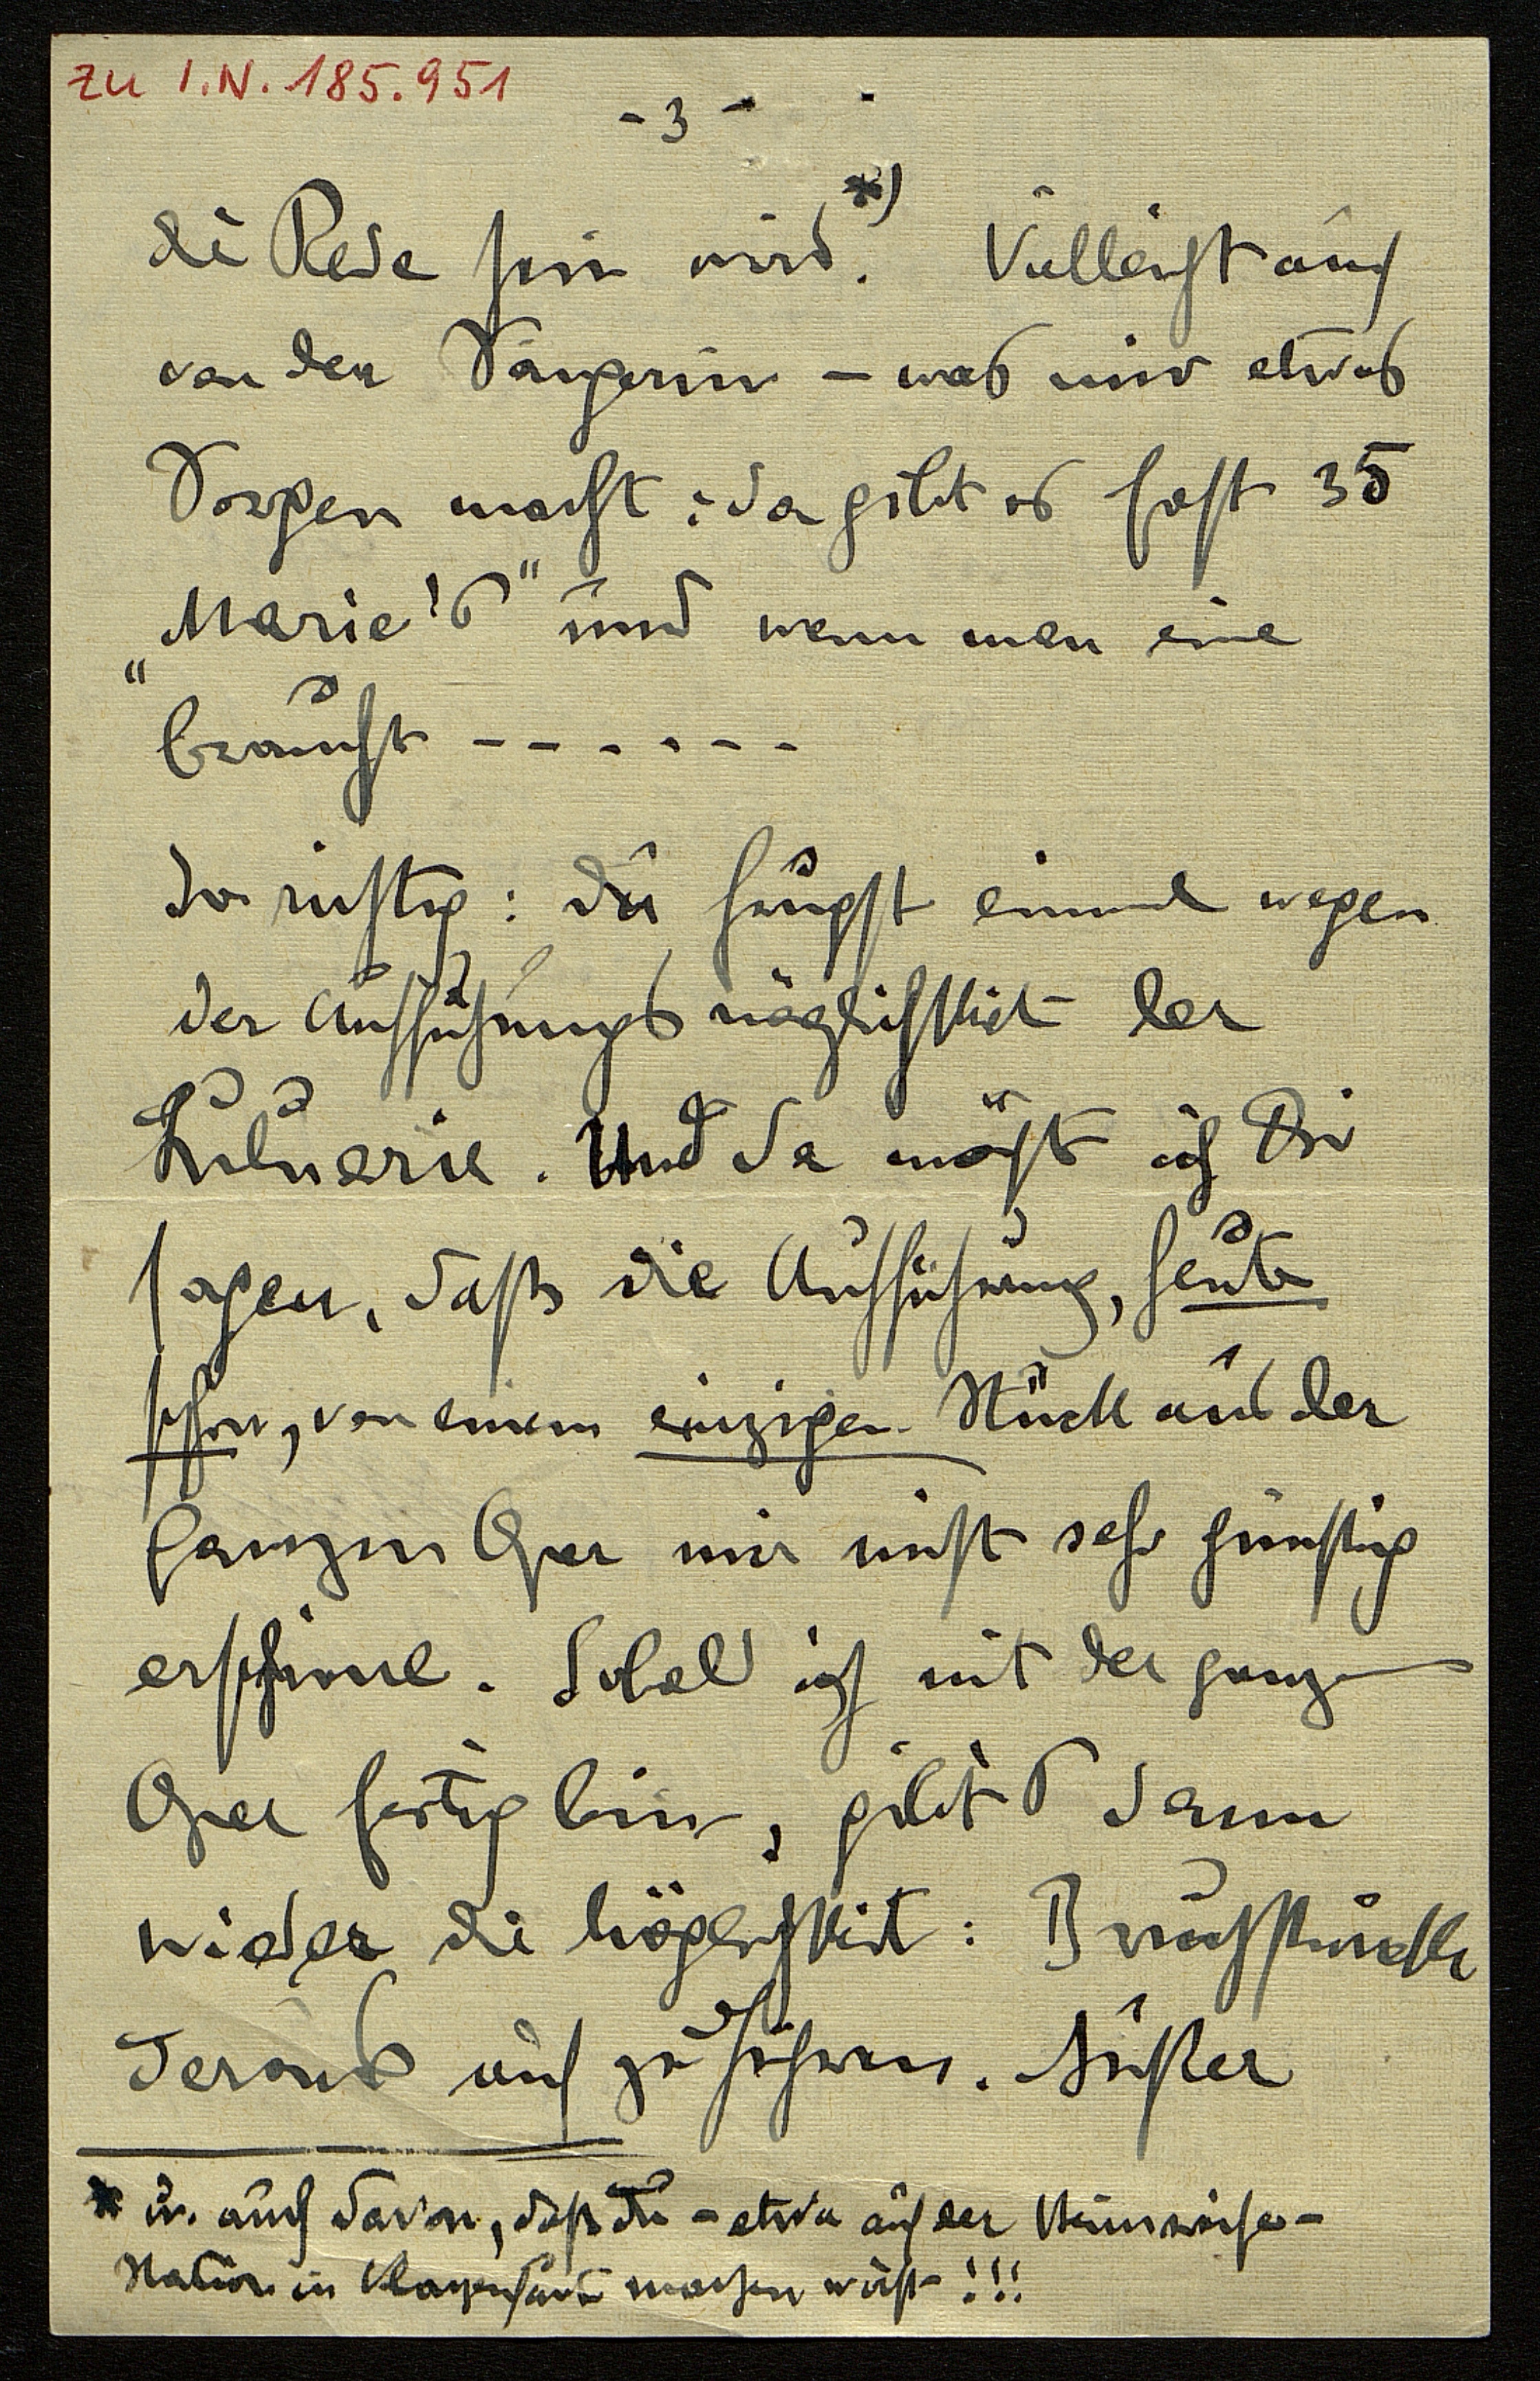 zu I.N. 185.951
- 3 -
die Rede sein wird.*) Vielleicht auch
von den Sängerinnen – was mir etwas
Sorgen macht: da gibt es fast 35
„Marie's" und wenn man eine
braucht ------
So richtig: Du frugst einmal wegen
der Aufführungsmöglichkeit der
Luluarie. Und da möcht ich Dir
sagen, dass die Aufführung, heute
schon, von einem einzigen Stück aus der
ganzen Oper mir nicht sehr günstig
erschiene. Sobald ich mit der ganzen
Oper fertig bin, gibt's dann
wieder die Möglichkeit: Bruchstücke
daraus aufzuführen. Außer
* u. auch davon, dass Du – etwa auf der
Station in Klagenfurt machen wirst!!!